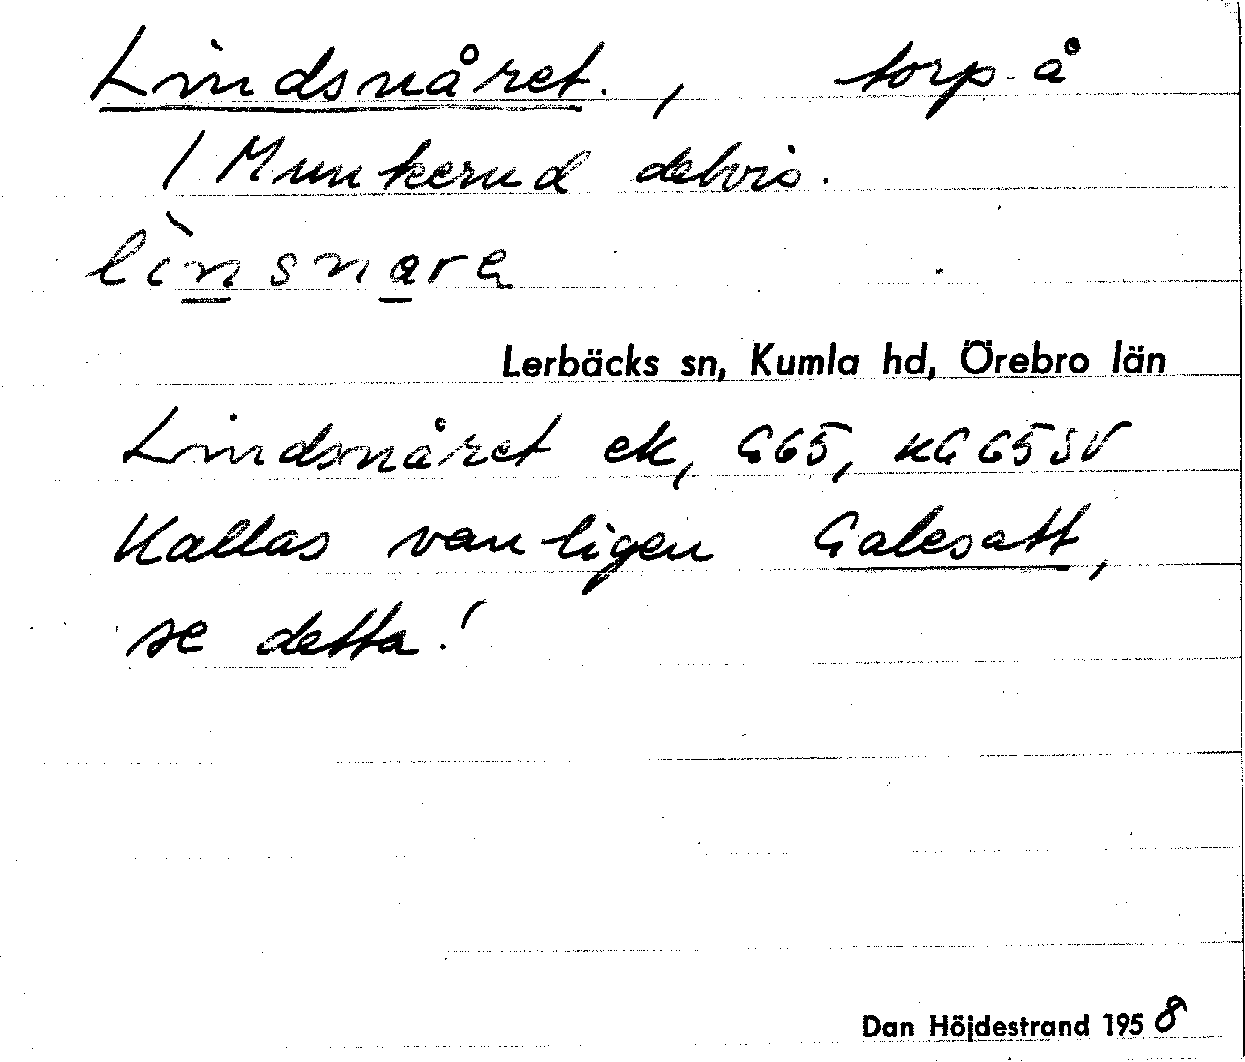 Lindsnåret. , torp å
/ Munkerud delvis.
lìnsnare
Lerbäcks sn, Kumla hd, Örebro län
Lindsnåret ek, G65, KG G5SV
Kallas vanligen Galesatt,
se detta!
Dan Höjdestrand 1958